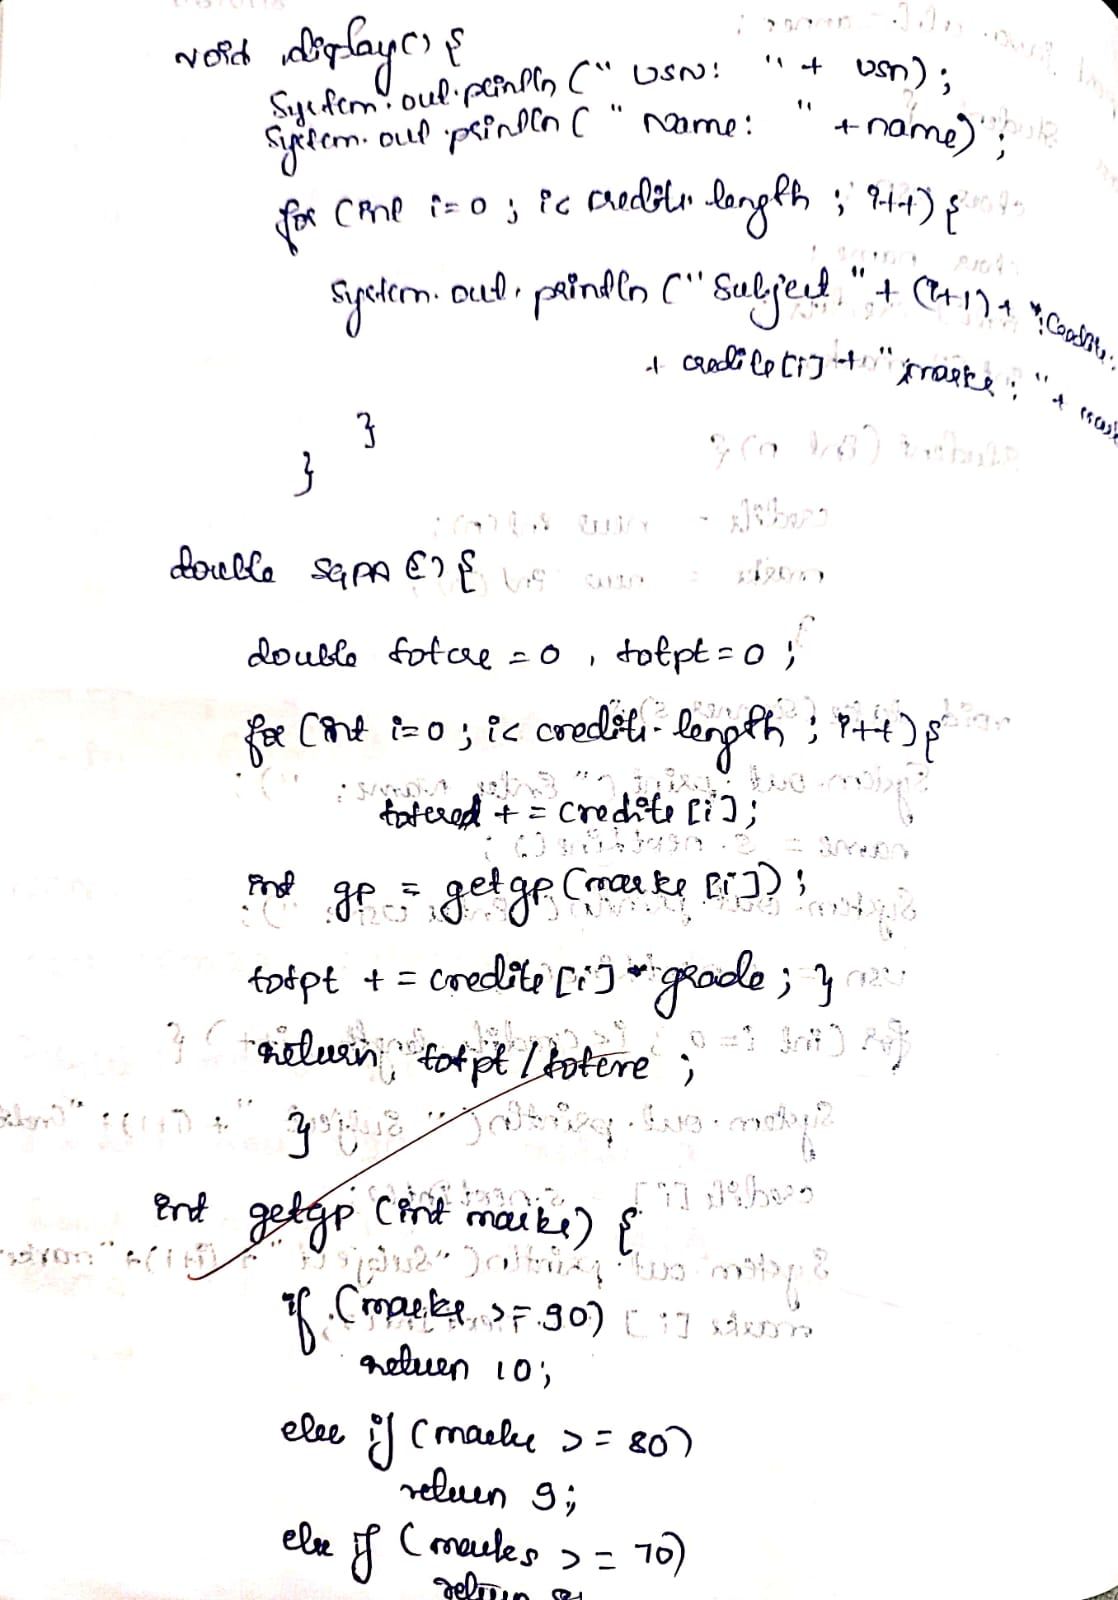 void display() {
System.out.println (" USN: " + usn);
System.out.println ( " Name: " + name);
for (int i=0 ; i< credits.length ; i++) {
System.out.println (" Subject " + (i+1) + ": Credits:
+ credits [i] + " marks : " +
}
}
double SGPA () {
double totcre = 0 , totpt = 0 ;
for (int i=0 ; i< credits.length ; i++) {
totcred + = credits [i];
int gp = getgp (marks [i]);
totpt + = credits [i] * grade ; }
return totpt / totcre ;
}
int getgp (int marks) {
if (marks >= 90)
return 10;
else if (marks >= 80)
return 9;
else if (marks >= 70)
return